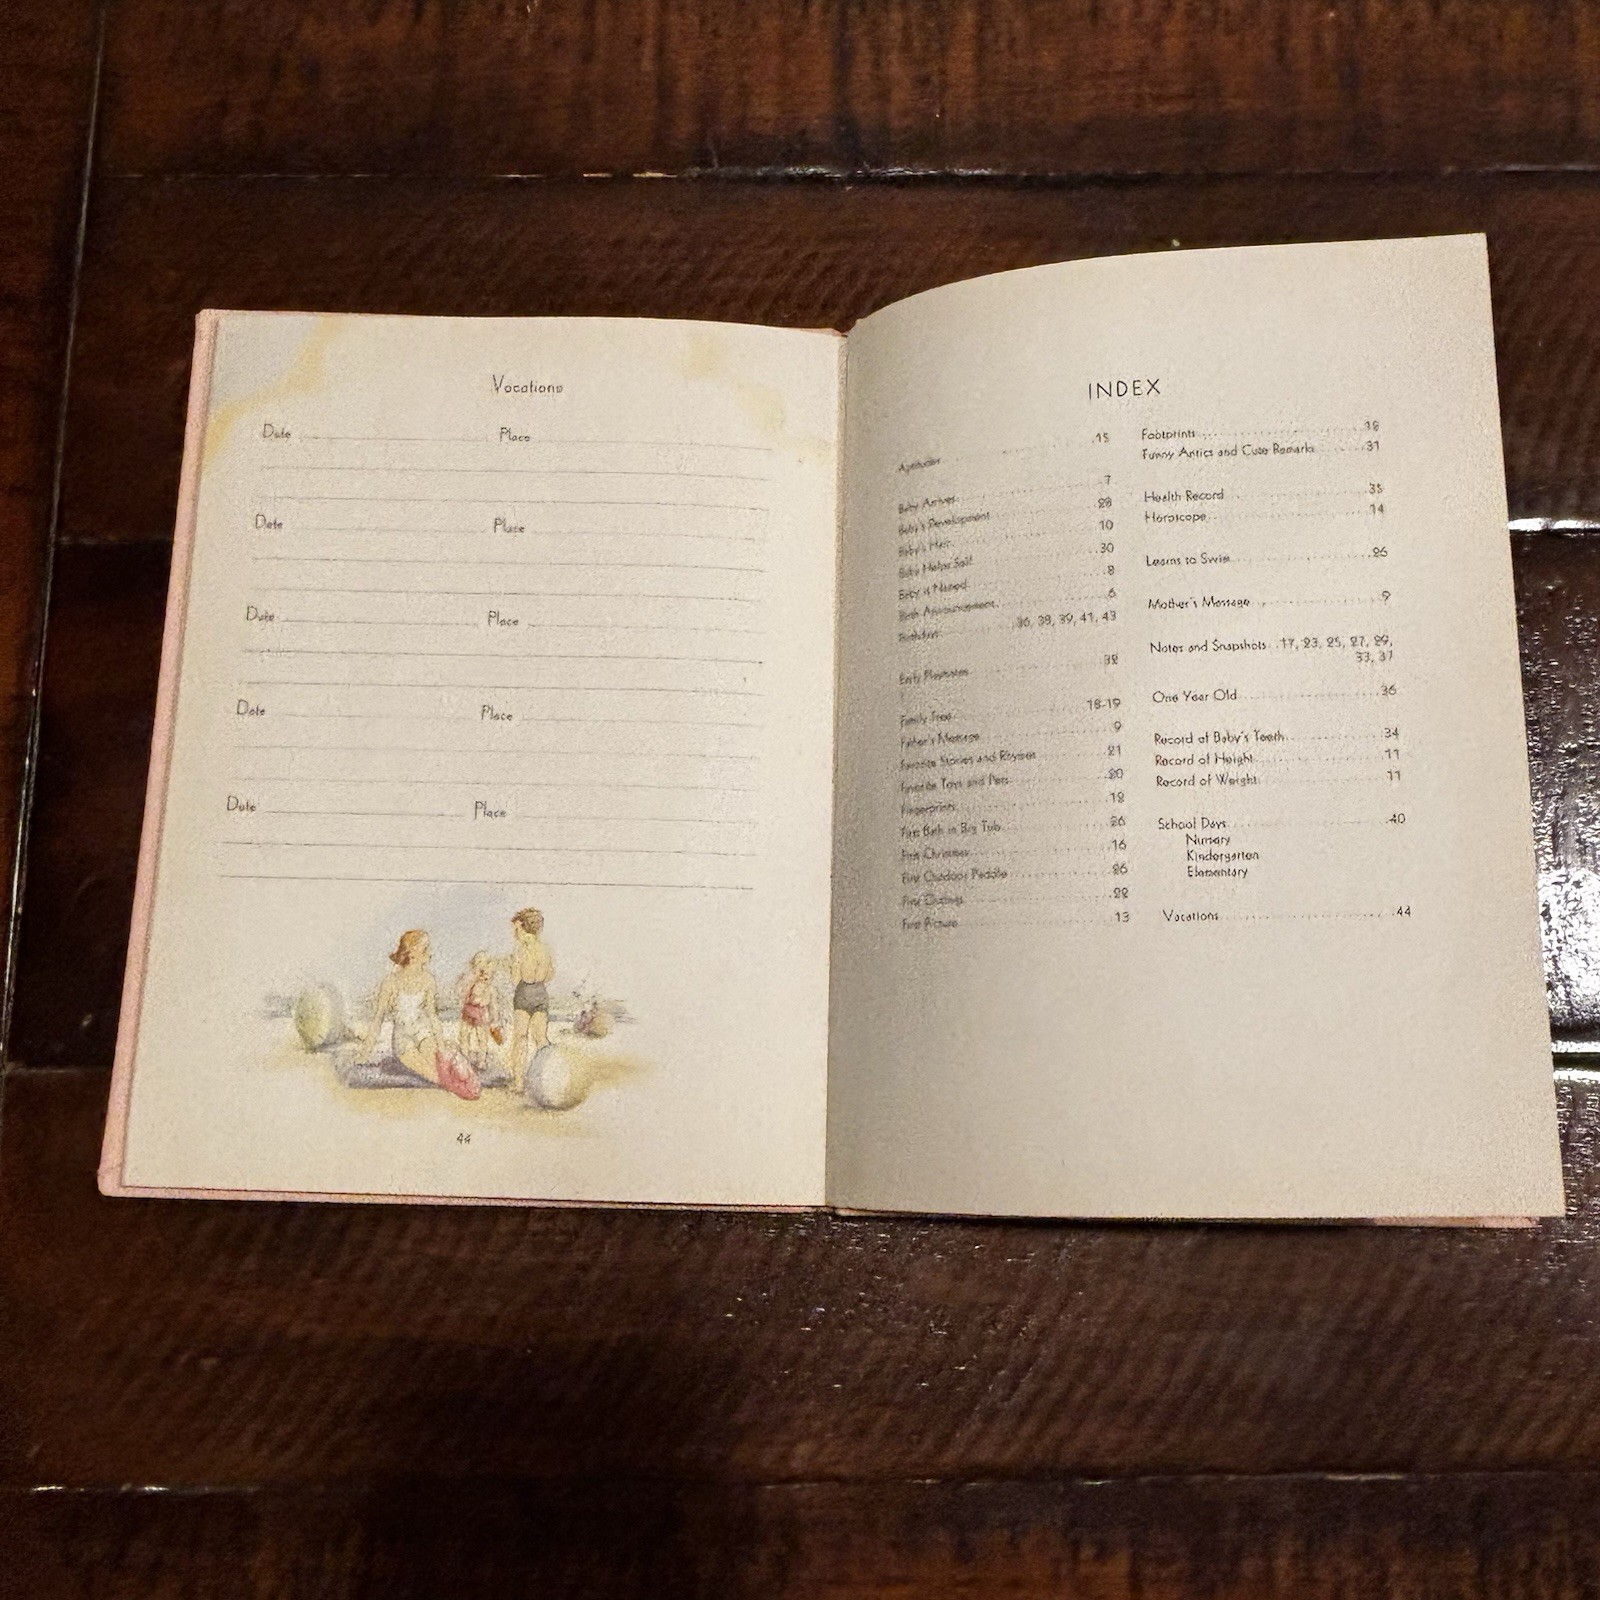 Vacations
Date Place
Date Place
Date Place
Date Place
Date Place
44
INDEX
Aptitudes 15
Baby Arrives 7
Baby's Development 28
Baby's Hair 10
Baby Helps Self 30
Baby is Named 8
Birth Announcement 6
Birthdays 36, 38, 39, 41, 43
Early Playmates 32
Family Tree 18-19
Father's Message 9
Favorite Stories and Rhymes 21
Favorite Toys and Pets 20
Fingerprints 12
First Bath in Big Tub 26
First Christmas 16
First Outdoor Paddle 26
First Outings 22
First Picture 13
Footprints 12
Funny Antics and Cute Remarks 31
Health Record 35
Horoscope 14
Learns to Swim 26
Mother's Message 9
Notes and Snapshots 17, 23, 25, 27, 29,
33, 37
One Year Old 36
Record of Baby's Teeth 34
Record of Height 11
Record of Weight 11
School Days 40
Nursery
Kindergarten
Elementary
Vacations 44